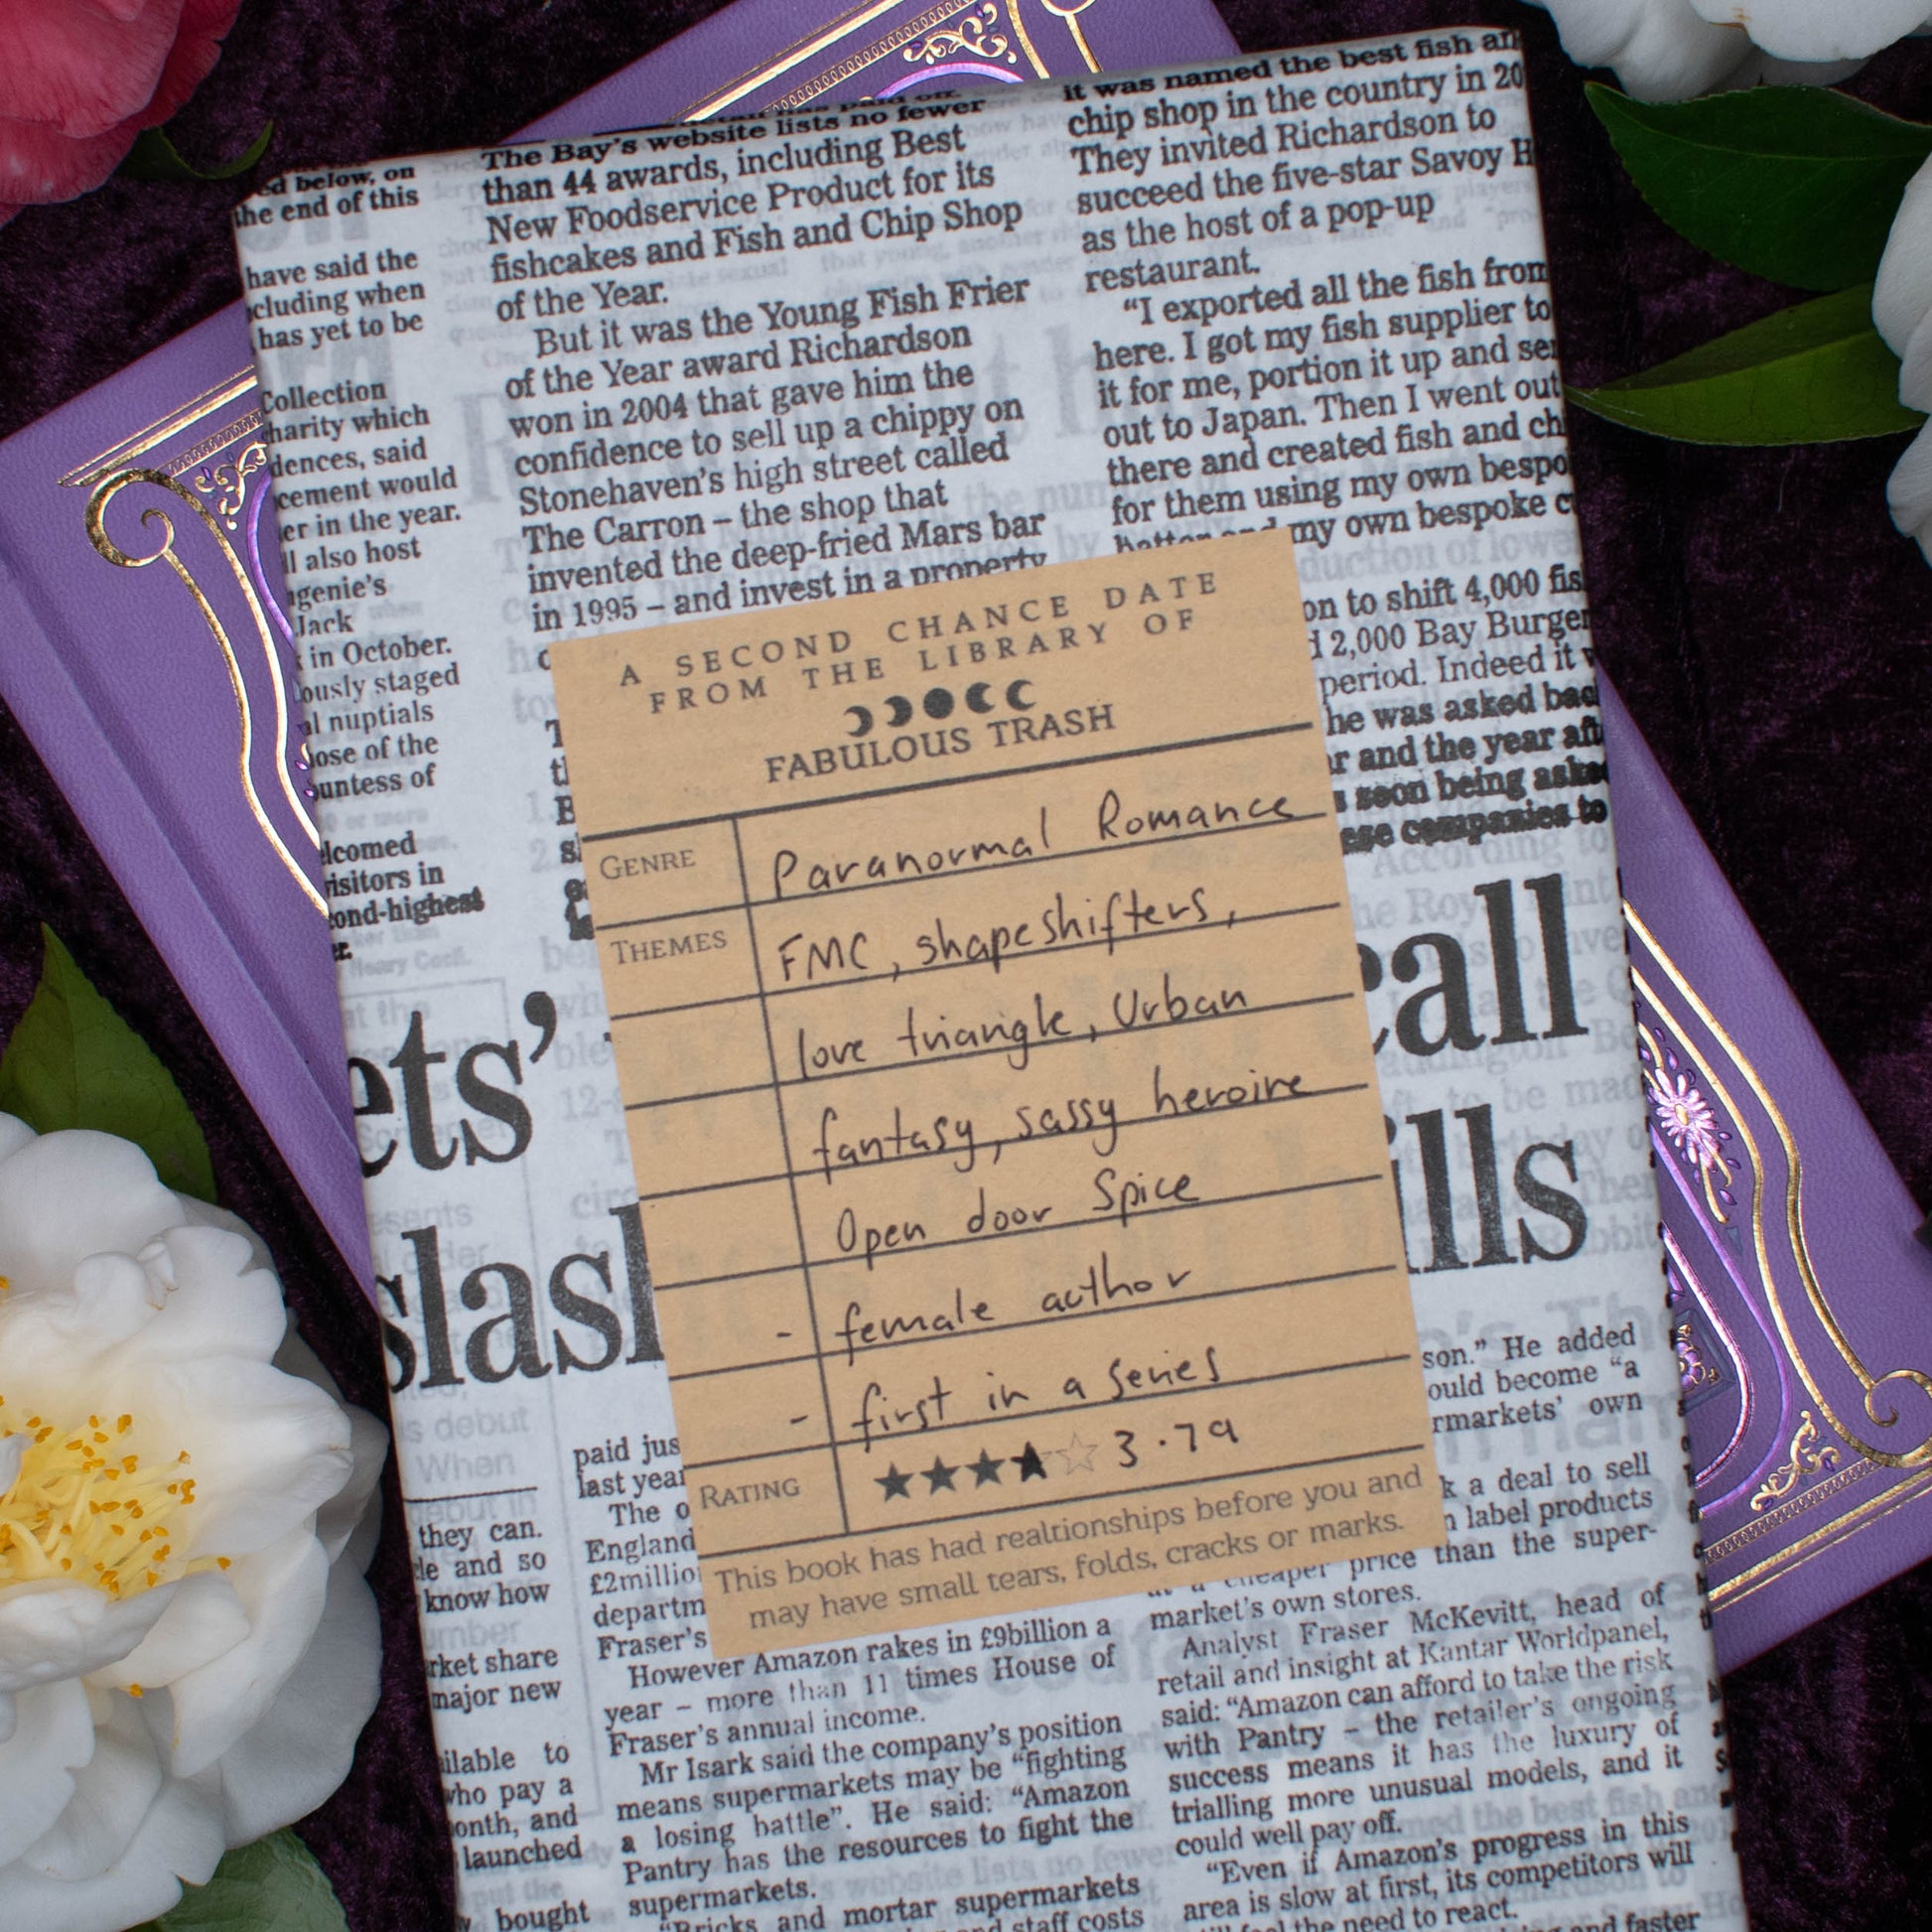 ed below, on
the end of this
have said the
cluding when
has yet to be
Collection
harity which
dences, said
cement would
er in the year.
ll also host
genie's
Jack
in October.
ously staged
al nuptials
lose of the
untess of
elcomed
visitors in
ond-highest
The Bay's website lists no fewer
than 44 awards, including Best
New Foodservice Product for its
fishcakes and Fish and Chip Shop
of the Year.
But it was the Young Fish Frier
of the Year award Richardson
won in 2004 that gave him the
confidence to sell up a chippy on
Stonehaven's high street called
The Carron – the shop that
invented the deep-fried Mars bar
in 1995 – and invest in a property
it was named the best fish an
chip shop in the country in 20
They invited Richardson to
succeed the five-star Savoy H
as the host of a pop-up
restaurant.
"I exported all the fish from
here. I got my fish supplier to
it for me, portion it up and se
out to Japan. Then I went out
there and created fish and chi
for them using my own bespo
batter and my own bespoke c
on to shift 4,000 fis
2,000 Bay Burger
period. Indeed it w
he was asked bac
r and the year aft
s soon being aske
ese companies to
A SECOND CHANCE DATE
FROM THE LIBRARY OF
FABULOUS TRASH
GENRE Paranormal Romance
THEMES FMC, shapeshifters,
love triangle, Urban
fantasy, sassy heroine
Open door Spice
- female author
- first in a series
RATING ★★★★☆ 3.79
This book has had realtionships before you and
may have small tears, folds, cracks or marks.
ets' call
slash ills
they can.
le and so
know how
rket share
major new
ilable to
who pay a
onth, and
launched
bought
paid jus
last year
The o
England
£2millio
departm
Fraser's
However Amazon rakes in £9billion a
year – more than 11 times House of
Fraser's annual income.
Mr Isark said the company's position
means supermarkets may be "fighting
a losing battle". He said: "Amazon
Pantry has the resources to fight the
supermarkets.
"Bricks and mortar supermarkets
and staff costs
son." He added
ould become "a
rmarkets' own
k a deal to sell
n label products
cheaper price than the super-
market's own stores.
Analyst Fraser McKevitt, head of
retail and insight at Kantar Worldpanel,
said: "Amazon can afford to take the risk
with Pantry – the retailer's ongoing
success means it has the luxury of
trialling more unusual models, and it
could well pay off.
"Even if Amazon's progress in this
area is slow at first, its competitors will
feel the need to react.
and faster